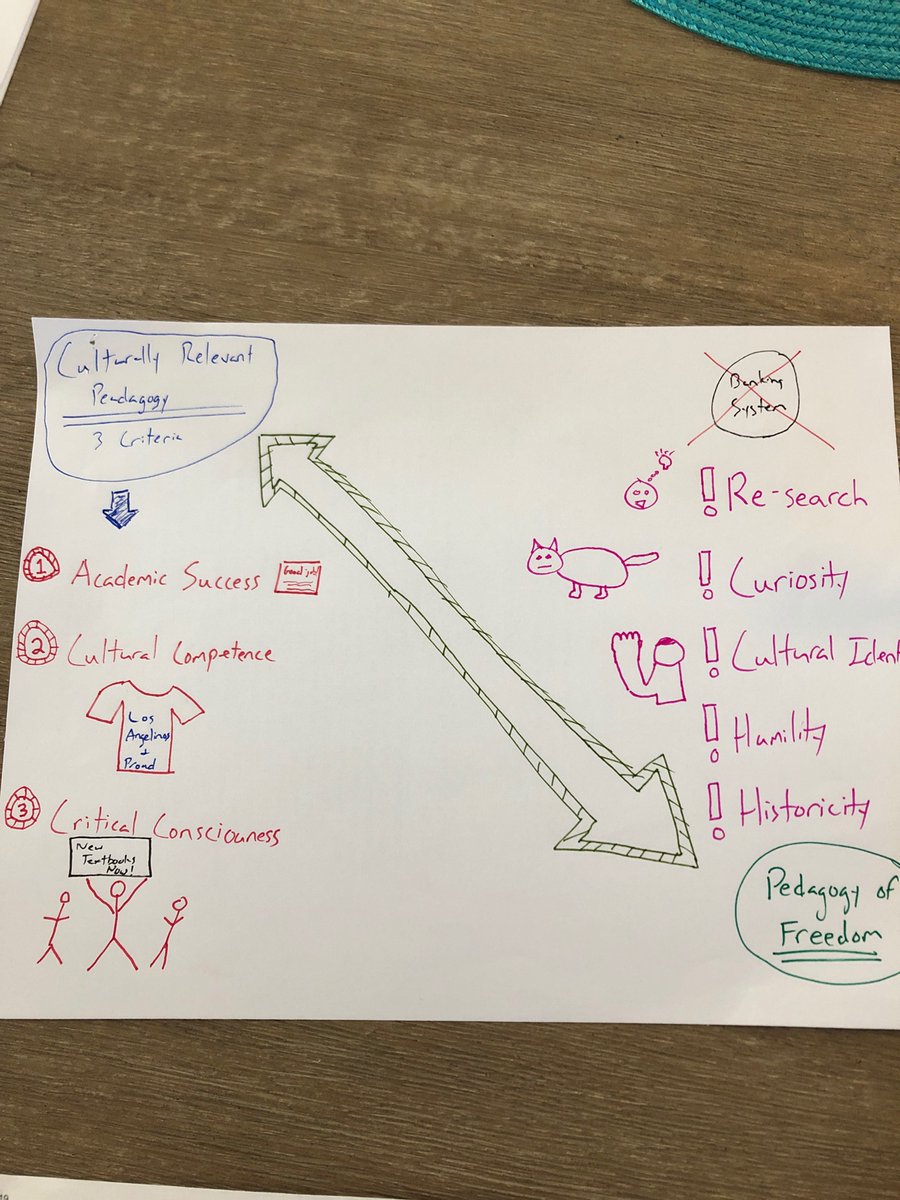 Culturally Relevant
Peadagogy
3 Criteria
1 Academic Success
Good job!
2 Cultural Competence
Los
Angelinos
+
Proud
3 Critical Consciouness
New
Textbooks
Now!
Banking
System
! Re-search
! Curiosity
! Cultural Ident
! Humility
! Historicity
Pedagogy of
Freedom
19